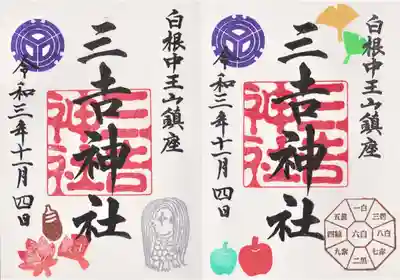 白根中王山鎮座
三吉神社
令和三年十一月四日
三吉神社
白根中王山鎮座
三吉神社
令和三年十一月四日
三吉神社
五黄 一白 三碧
四緑 六白 八白
九紫 二黒 七赤